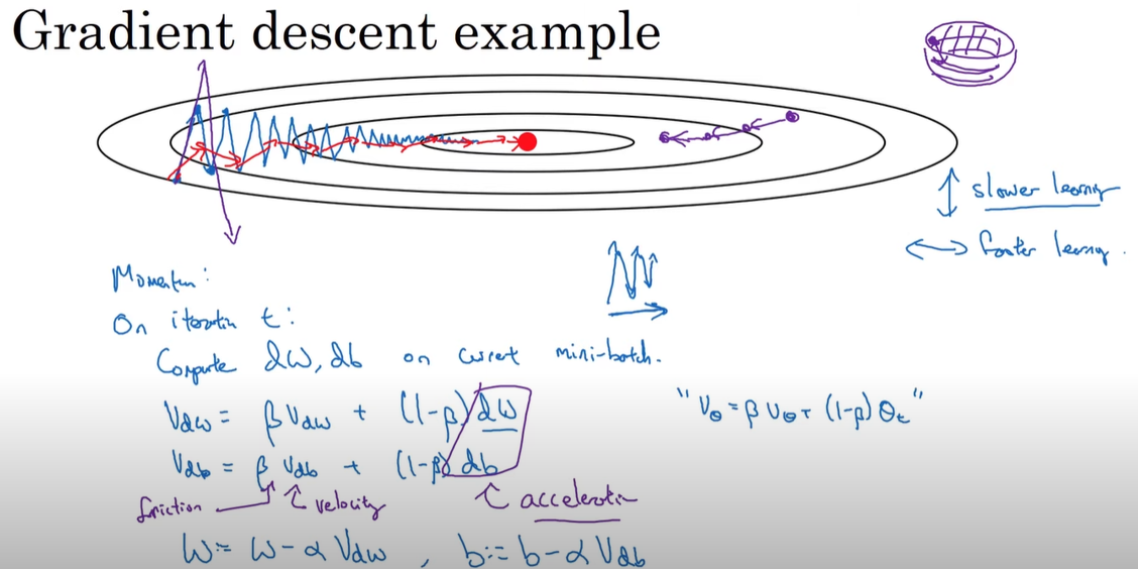 Gradient descent example
↕ slower learning
↔ faster learning.
Momentum:
On iteration t:
Compute dW, db on current mini-batch.
Vdw = β Vdw + (1-β) dW
"Vθ = β Vθ + (1-β) θt"
Vdb = β Vdb + (1-β) db
friction velocity acceleration
W := W - α Vdw , b := b - α Vdb